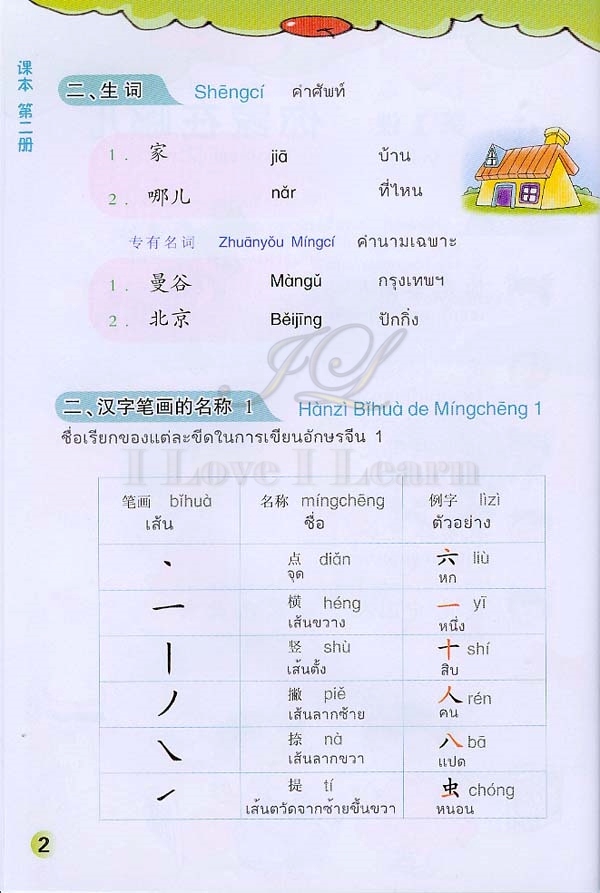 课本 第二册
二、生词 Shēngcí คำศัพท์
1. 家 jiā บ้าน
2. 哪儿 nǎr ที่ไหน
专有名词 Zhuānyǒu Míngcí คำนามเฉพาะ
1. 曼谷 Màngǔ กรุงเทพฯ
2. 北京 Běijīng ปักกิ่ง
JL
二、汉字笔画的名称 1 Hànzì Bǐhuà de Míngchēng 1
ชื่อเรียกของแต่ละขีดในการเขียนอักษรจีน 1
I Love I Learn
笔画 bǐhuà 名称 míngchēng 例字 lìzì
เส้น ชื่อ ตัวอย่าง
丶 点 diǎn 六 liù
จุด หก
一 横 héng 一 yī
เส้นขวาง หนึ่ง
丨 竖 shù 十 shí
เส้นตั้ง สิบ
丿 撇 piě 人 rén
เส้นลากซ้าย คน
㇏ 捺 nà 八 bā
เส้นลากขวา แปด
㇀ 提 tí 虫 chóng
เส้นตวัดจากซ้ายขึ้นขวา หนอน
2